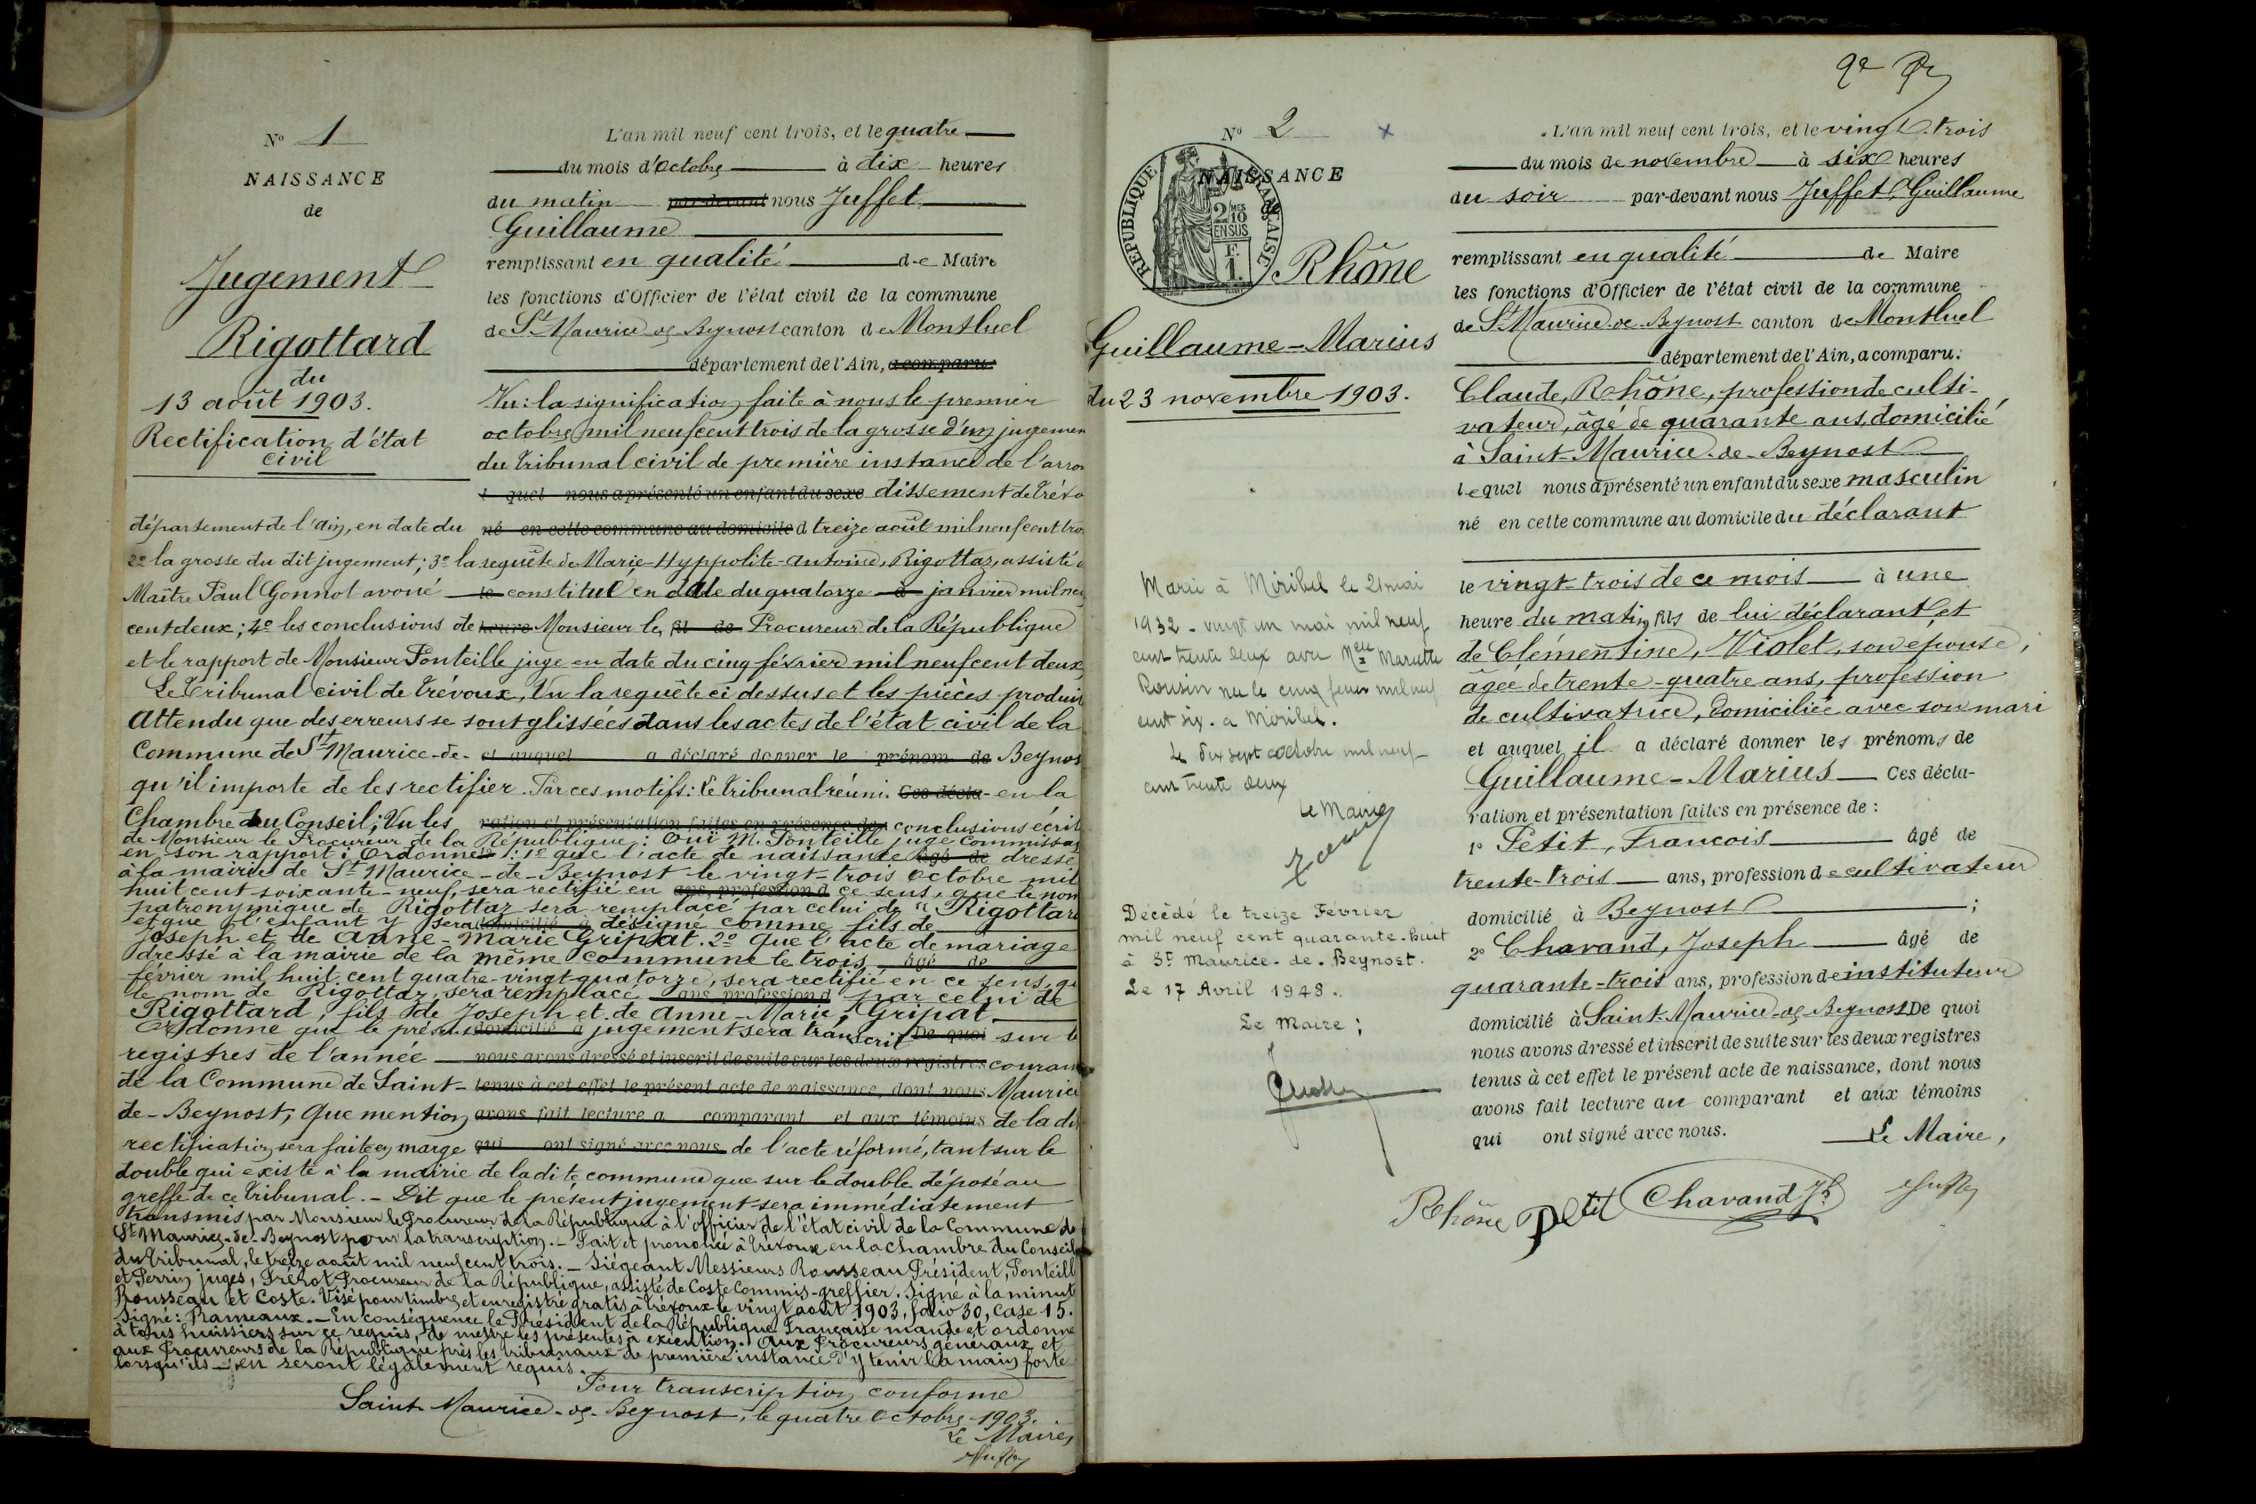 No 1
NAISSANCE
de
Jugement
Rigottard
du
13 août 1903.
Rectification d'état
civil
L'an mil neuf cent trois, et le quatre
du mois d'octobre à dix heures
du matin par-devant nous Juffet
Guillaume
remplissant en qualité de Maire
les fonctions d'Officier de l'état civil de la commune
de St Maurice de Beynost canton de Montluel
département de l'Ain, a comparu:
Vu: la signification faite à nous le premier
octobre mil neuf cent trois de la grosse d'un jugemen
du Tribunal civil de première instance de l'arron
l quel nous a présenté un enfant du sexe dissement de Trévo
département de l'Ain, en date du né en cette commune au domicile d treize août mil neuf cent troi
2° la grosse du dit jugement; 3° la requête de Marie-Hyppolite-Antoine, Rigottaz, assisté d
Maître Paul Gonnot avoué le constitué en date du quatorze à janvier mil neu
cent deux; 4° les conclusions de heure Monsieur le fil de Procureur de la République
et le rapport de Monsieur Ponteille juge en date du cinq février mil neuf cent deux,
Le Tribunal civil de Trévoux, Vu la requête ci dessus et les pièces produi
Attendu que des erreurs se sont glissées dans les actes de l'état civil de la
Commune de St Maurice-de- et auquel a déclaré donner le prénom de Beynos
qu'il importe de les rectifier. Par ces motifs: Le Tribunal réuni. Ces décla- en la
Chambre du Conseil; Vu les ration et présentation faites en présence de: conclusions écrit
de Monsieur le Procureur de la République: Ouï M. Ponteille juge commissai
en son rapport: Ordonne: 1° que l'acte de naissance âgé de dressé
à la mairie de St Maurice-de-Beynost le vingt-trois octobre mil
huit cent soixante-neuf, sera rectifié en ans, profession d ce sens, que le nom
patronymique de Rigottaz sera remplacé par celui de "Rigottard
et que l'enfant y sera domicilié à désigné comme fils de
Joseph et de Anne-Marie Gripat. 2° Que l'acte de mariage
dressé à la mairie de la même commune le trois âgé de
février mil huit cent quatre-vingt quatorze, sera rectifié en ce sens, qu
le nom de Rigottaz, sera remplacé ans, profession d par celui de
Rigottard, fils de Joseph et de Anne-Marie Gripat.
Ordonne que le présent domicilié à jugement sera transcrit De quoi sur le
registres de l'année nous avons dressé et inscrit de suite sur les deux registres couran
de la Commune de Saint- tenus à cet effet le présent acte de naissance, dont nous Maurice
de-Beynost, Que mention avons fait lecture a comparant et aux témoins de la di
rectification sera faite en marge qui ont signé avec nous. de l'acte réformé, tant sur le
double qui existe à la mairie de la dite commune que sur le double déposé au
greffe de ce Tribunal. - Dit que le présent jugement sera immédiatement
transmis par Monsieur le Procureur de la République à l'officier de l'état civil de la Commune de
St Maurice-de-Beynost pour la transcription. - Fait et prononcé à Trévoux en la chambre du Conseil
du Tribunal, le treize août mil neuf cent trois. - Siégeant Messieurs Rousseau Président, Ponteill
et Perrin juges, Frérot Procureur de la République, assisté de Coste Commis-greffier. Signé à la minut
Rousseau et Coste. Visé pour timbre et enregistré gratis à Trévoux le vingt août 1903, folio 30, case 15.
Signé: Rameaux. - En conséquence le Président de la République Française mande et ordonne
à tous huissiers sur ce requis, de mettre les présentes à exécution. Aux Procureurs généraux et
aux Procureurs de la République près les tribunaux de première instance d'y tenir la main forte
lorsqu'ils en seront légalement requis.
Pour transcription conforme
Saint Maurice-de-Beynost, le quatre octobre 1903.
Le Maire,
Juffet
No 2
NAISSANCE
de
RÉPUBLIQUE FRANÇAISE
2/10 EN SUS
F. 1.
Rhône
Guillaume-Marius
du 23 novembre 1903.
Marié à Miribel le 21 mai
1932 - vingt un mai mil neuf
cent trente deux avec Melle Mariette
Rousin née le cinq février mil neuf
cent six. a Miribel.
Le dix sept octobre mil neuf
cent trente deux
Le Maire
Décédé le treize Février
mil neuf cent quarante-huit
à St Maurice-de-Beynost.
Le 17 Avril 1948.
Le Maire;
L'an mil neuf cent trois, et le vingt-trois
du mois de novembre à six heures
du soir par-devant nous Juffet, Guillaume
remplissant en qualité de Maire
les fonctions d'Officier de l'état civil de la commune
de St Maurice de Beynost canton de Montluel
département de l'Ain, a comparu:
Claude, Rhône, profession de culti-
vateur, âgé de quarante ans, domicilié
à Saint-Maurice-de-Beynost
lequel nous a présenté un enfant du sexe masculin
né en cette commune au domicile du déclarant
le vingt-trois de ce mois à une
heure du matin, fils de lui déclarant et
de Clémentine, Violet, son épouse,
âgée de trente-quatre ans, profession
de cultivatrice, domiciliée avec son mari
et auquel il a déclaré donner les prénoms de
Guillaume-Marius Ces décla-
ration et présentation faites en présence de:
1° Petit, Francois âgé de
trente-trois ans, profession de cultivateur
domicilié à Beynost;
2° Chavand, Joseph âgé de
quarante-trois ans, profession de instituteur
domicilié à Saint-Maurice-de-Beynost De quoi
nous avons dressé et inscrit de suite sur les deux registres
tenus à cet effet le présent acte de naissance, dont nous
avons fait lecture au comparant et aux témoins
qui ont signé avec nous. Le Maire,
Rhône Petit Chavand Jh Juffet